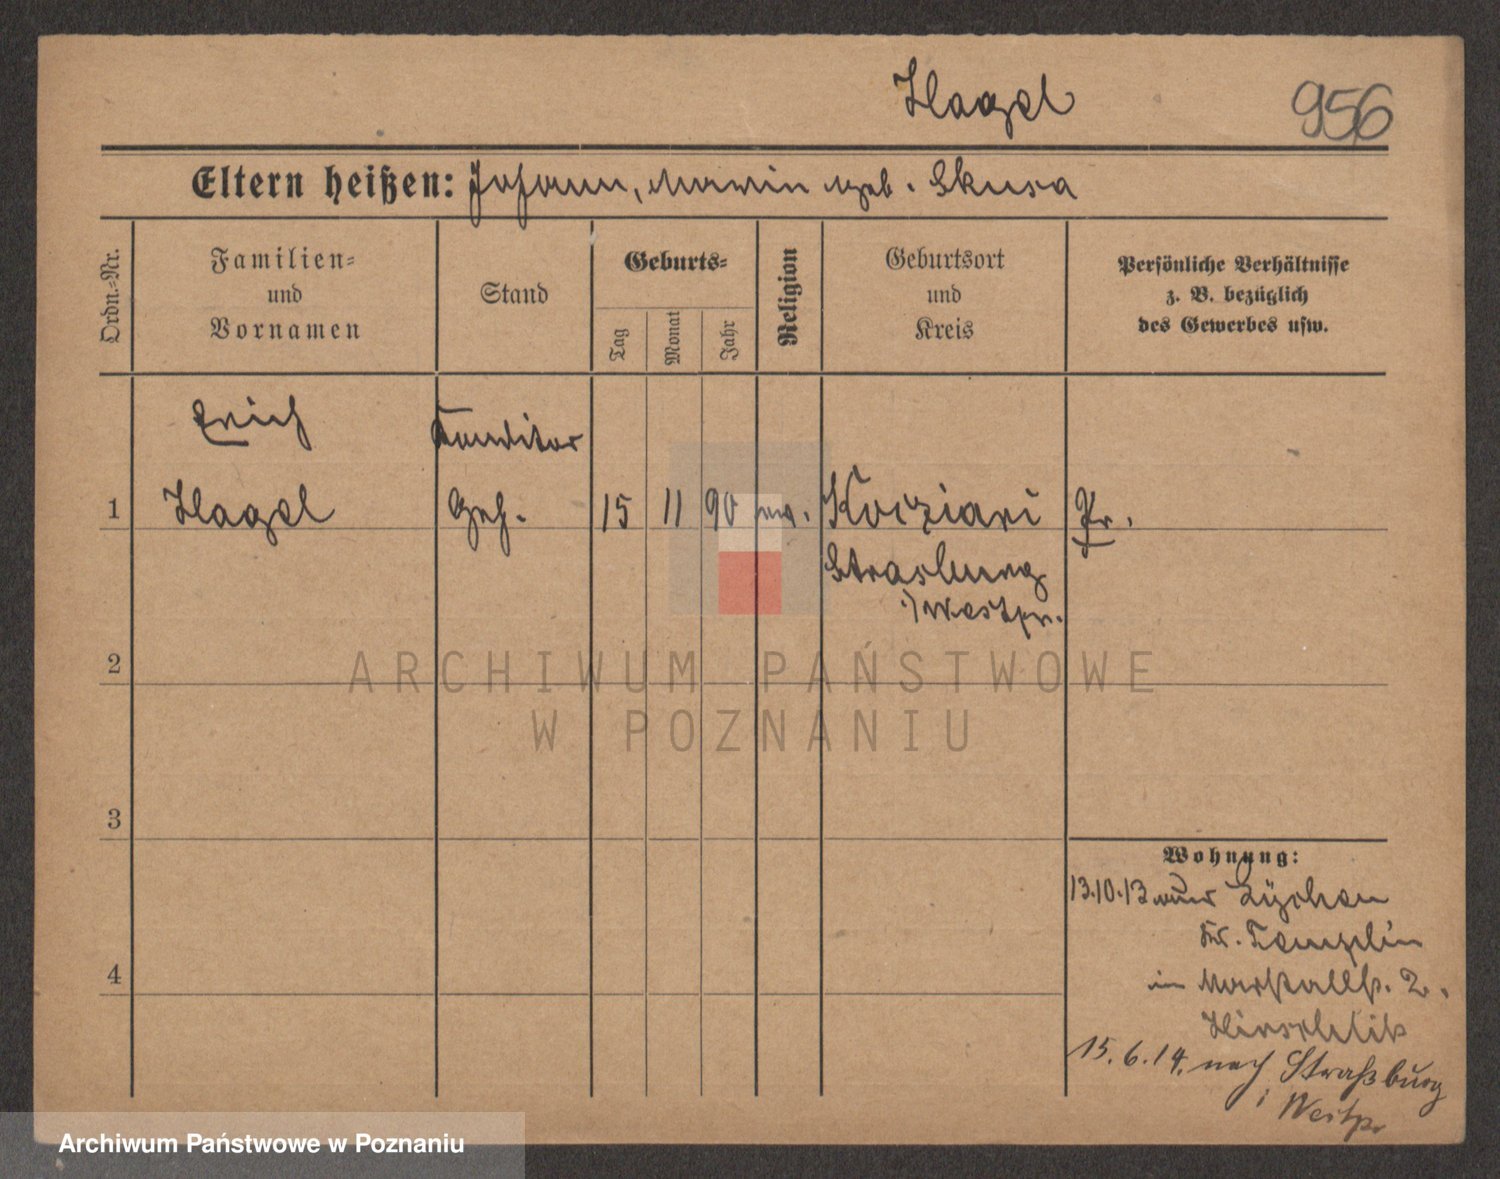 Hagel
956
Eltern heißen: Johann, Marie geb. Skusa
Ordn.-Nr.
Familien-
und
Vornamen
Stand
Geburts-
Tag
Monat
Jahr
Religion
Geburtsort
und
Kreis
Persönliche Verhältnisse
z. B. bezüglich
des Gewerbes usw.
Erich
Konditor
1
Hagel
Geh.
15
11
90
ev.
Pr.
Strasburg
i/Westpr.
2
ARCHIWUM PAŃSTWOWE
W POZNANIU
3
Wohnung:
13.10.13 Lychen
Kr. Templin
4
2.
15.6.14. nach Straßburg
i Westpr
Archiwum Państwowe w Poznaniu